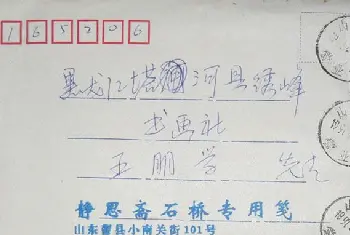 165206
黑龙江塔河县绣峰
书画社
王朋学 先生
静思斋石桥专用笺
山东曹县小南关街101号